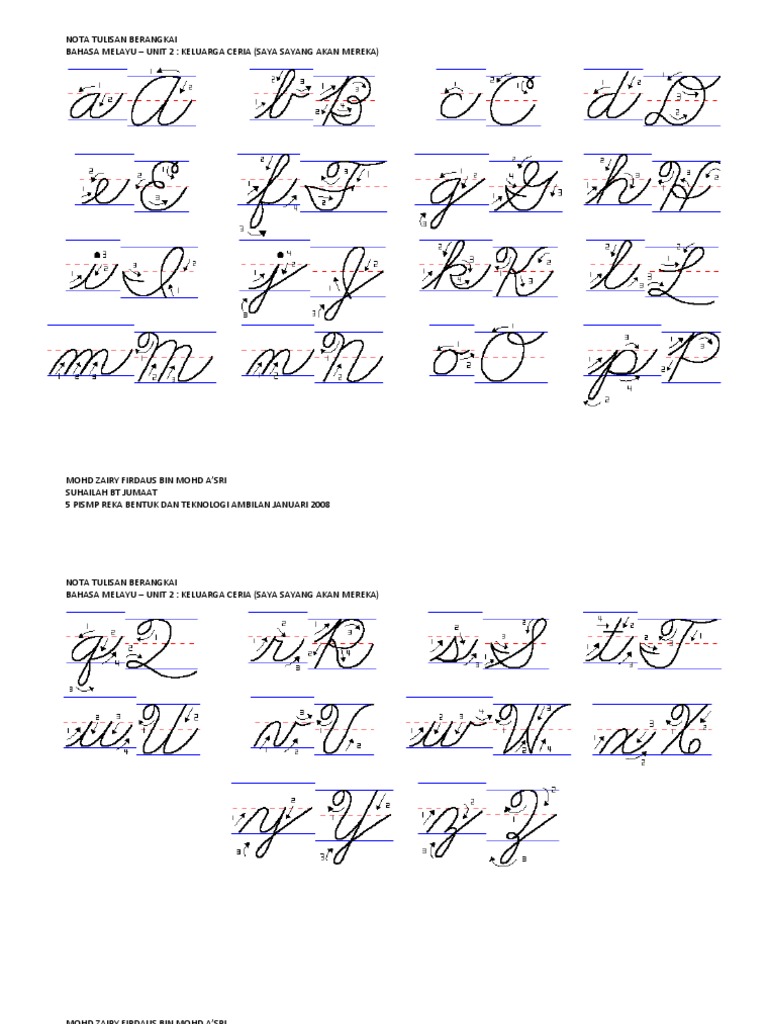 NOTA TULISAN BERANGKAI
BAHASA MELAYU – UNIT 2 : KELUARGA CERIA (SAYA SAYANG AKAN MEREKA)
a A b B c C d D
e E f F g G h H
i I j J k K l L
m M n N o O p P
MOHD ZAIRY FIRDAUS BIN MOHD A'SRI
SUHAILAH BT JUMAAT
5 PISMP REKA BENTUK DAN TEKNOLOGI AMBILAN JANUARI 2008
NOTA TULISAN BERANGKAI
BAHASA MELAYU – UNIT 2 : KELUARGA CERIA (SAYA SAYANG AKAN MEREKA)
q Q r R s S t T
u U v V w W x X
y Y z Z
MOHD ZAIRY FIRDAUS BIN MOHD A'SRI